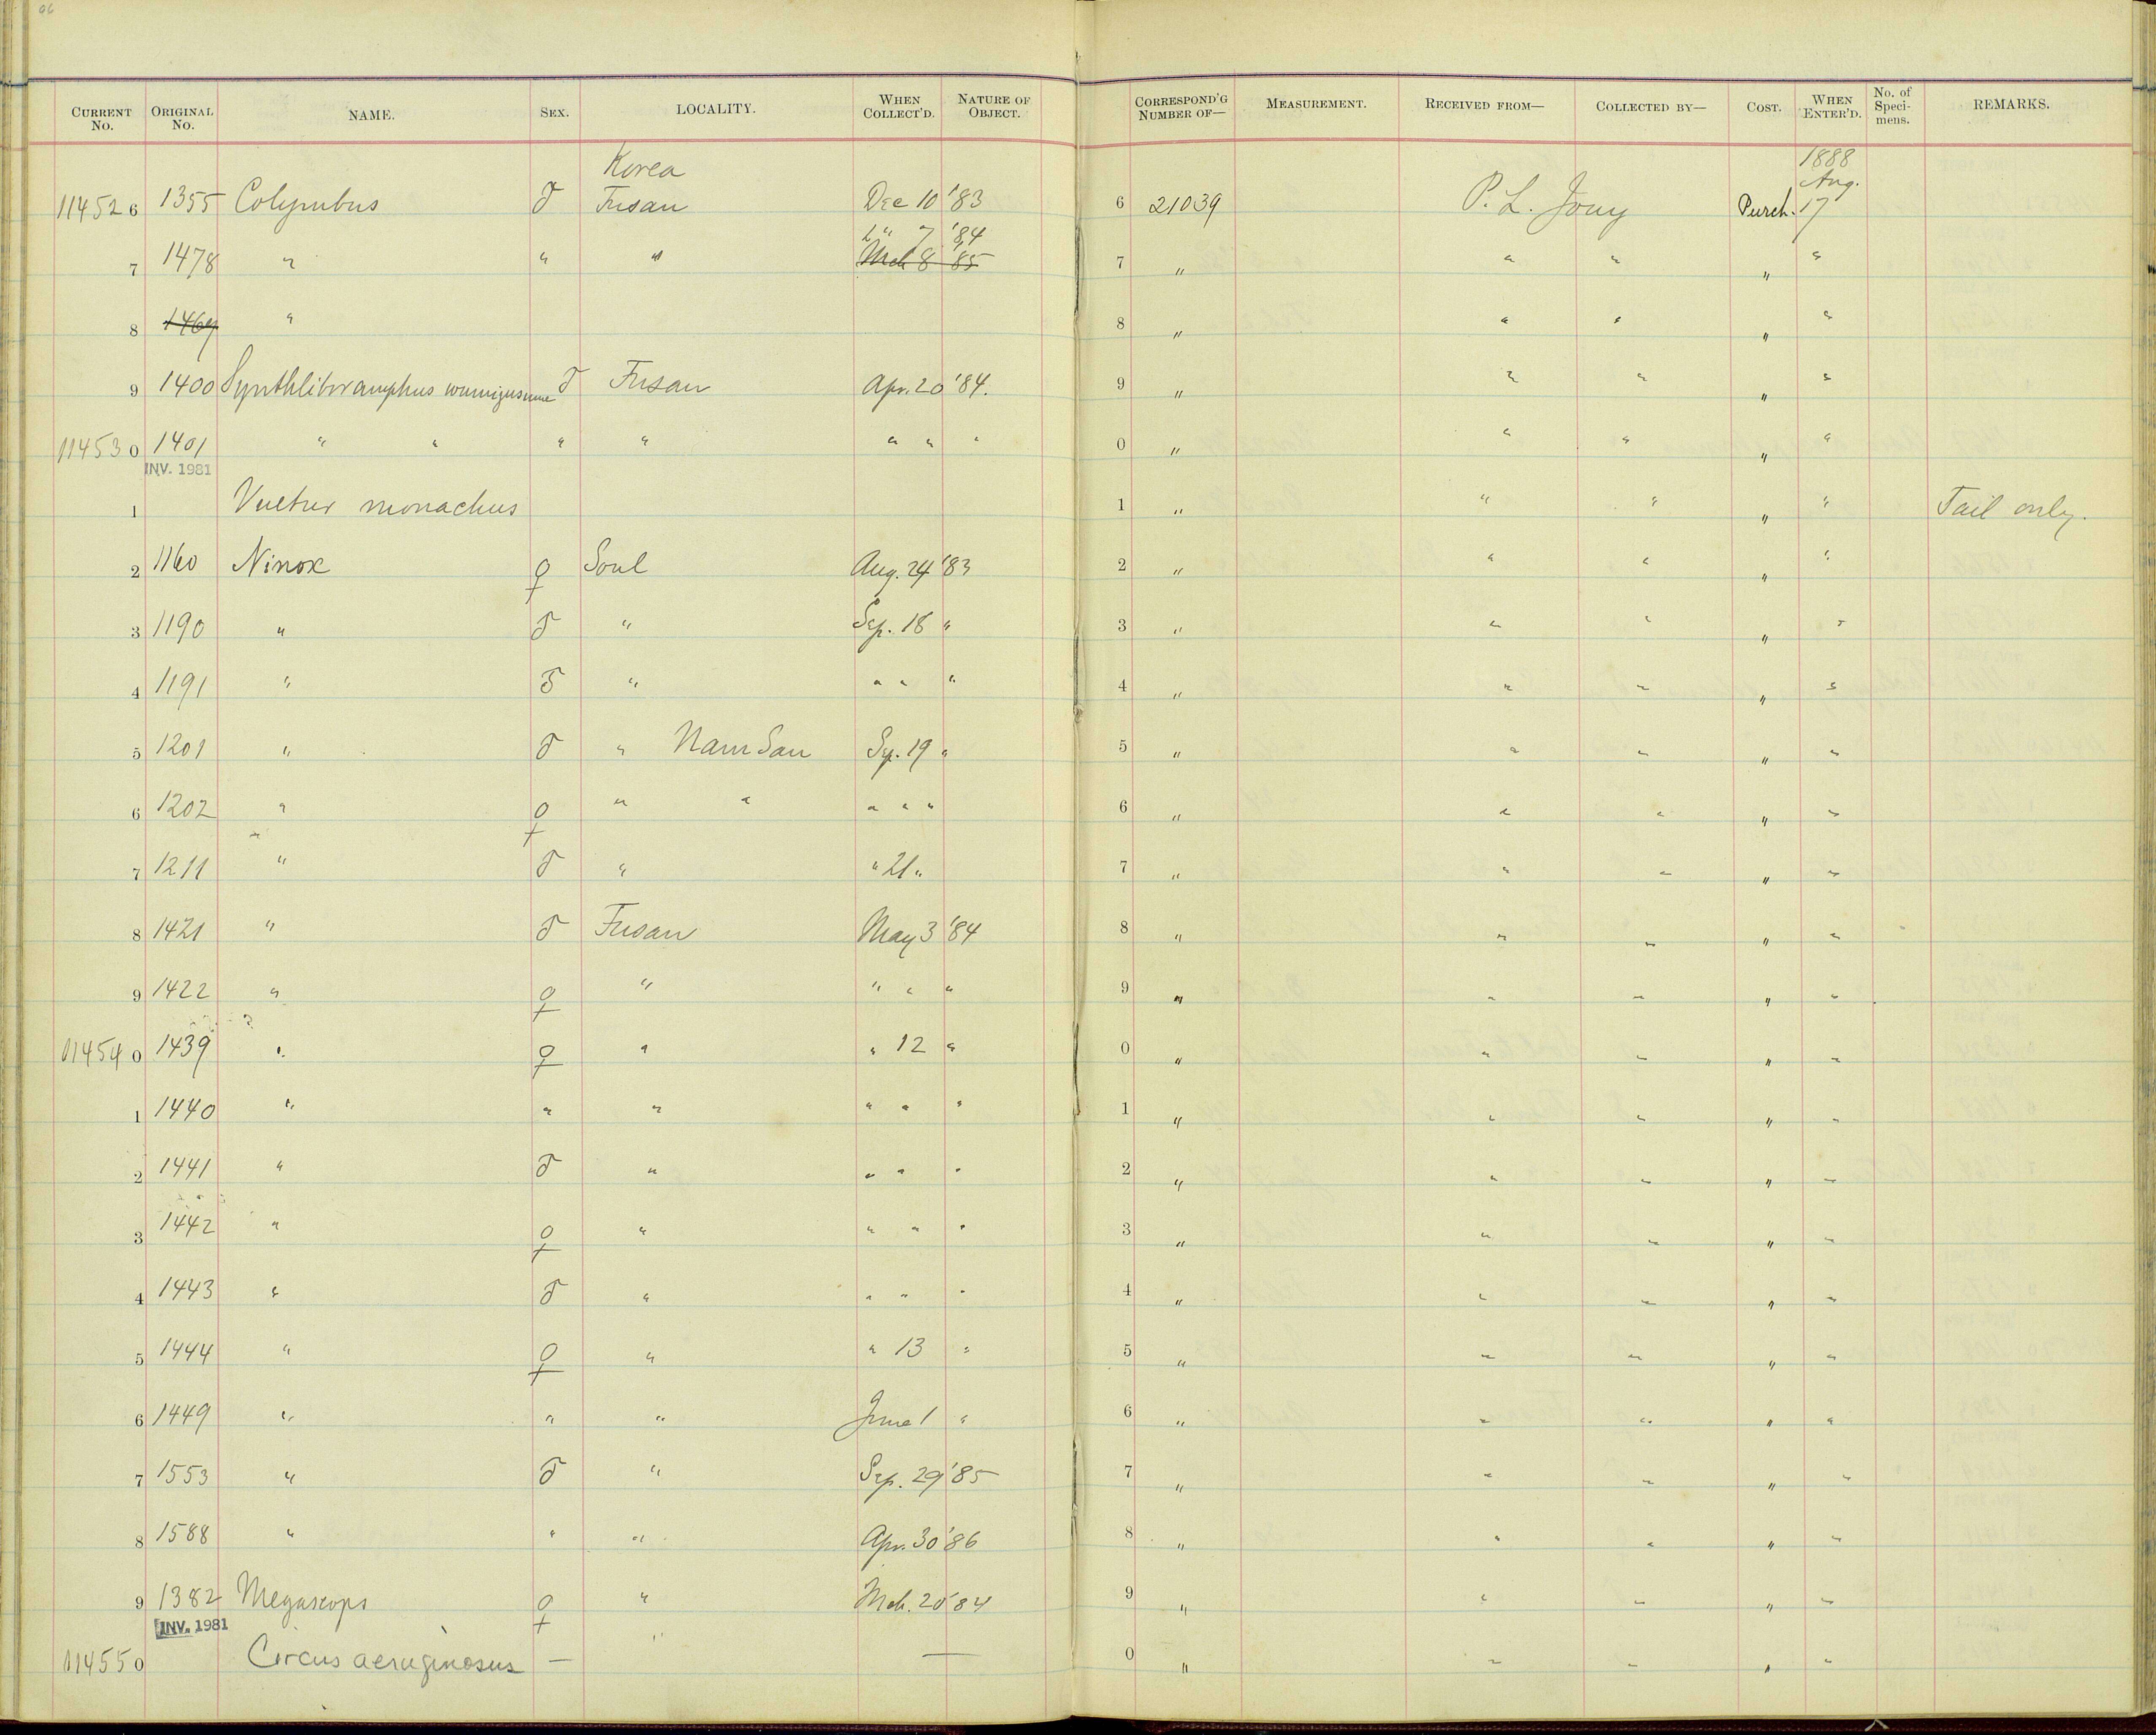 CURRENT No. ORIGINAL No. NAME. SEX. LOCALITY. WHEN COLLECT'D. NATURE OF OBJECT. CORRESPOND'G NUMBER OF— MEASUREMENT. RECEIVED FROM— COLLECTED BY— COST. WHEN ENTER'D. No. of Specimens. REMARKS.
Korea 1888 Aug.
114526 1355 Colymbus ♂ Fusan Dec 10 '83 6 21039 P. L. Jouy Purch. 17
7 '84
7 1478 " " " Mch 8 '85 7 " " " " "
8 1469 " 8 " " " " "
9 1400 Synthliboramphus wumizusume ♂ Fusan Apr. 20 '84. 9 " " " " "
114530 1401 " " " " " " " 0 " " " " "
INV. 1981
1 Vultur monachus 1 " " " " " Tail only.
2 1160 Ninox ♀ Soul Aug. 24 '83 2 " " " " "
3 1190 " ♂ " Sep. 18 " 3 " " " " "
4 1191 " ♂ " " " " 4 " " " " "
5 1201 " ♂ " Nam San Sep. 19 " 5 " " " " "
6 1202 " ♀ " " " " " 6 " " " " "
7 1211 " ♂ " " 21 " 7 " " " " "
8 1421 " ♂ Fusan May 3 '84 8 " " " " "
9 1422 " ♀ " " " " 9 " " " " "
114540 1439 " ♀ " " 12 " 0 " " " " "
1 1440 " " " " " " 1 " " " " "
2 1441 " ♂ " " " " 2 " " " " "
3 1442 " ♀ " " " " 3 " " " " "
4 1443 " ♂ " " " " 4 " " " " "
5 1444 " ♀ " " 13 " 5 " " " " "
6 1449 " " " June 1 " 6 " " " " "
7 1553 " ♂ " Sep. 29 '85 7 " " " " "
8 1588 " " " Apr. 30 '86 8 " " " " "
9 1382 Megascops ♀ " Mch. 20 '84 9 " " " " "
INV. 1981
114550 Circus aeruginosus — " — 0 " " " " "